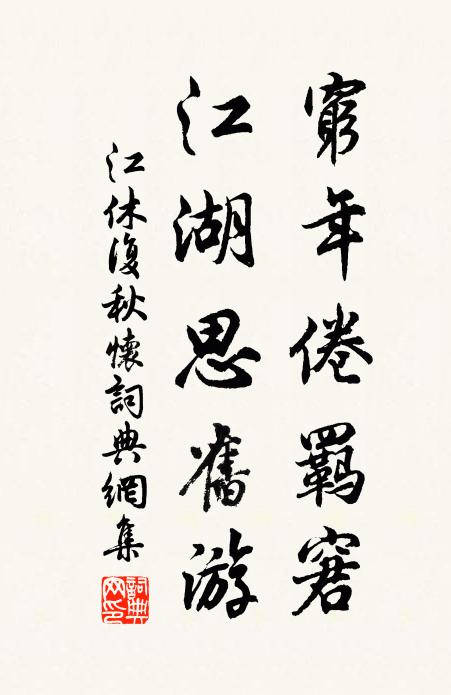 窮年倦羈窘
江湖思舊游
江休復秋懷詞典網集
詞典网印